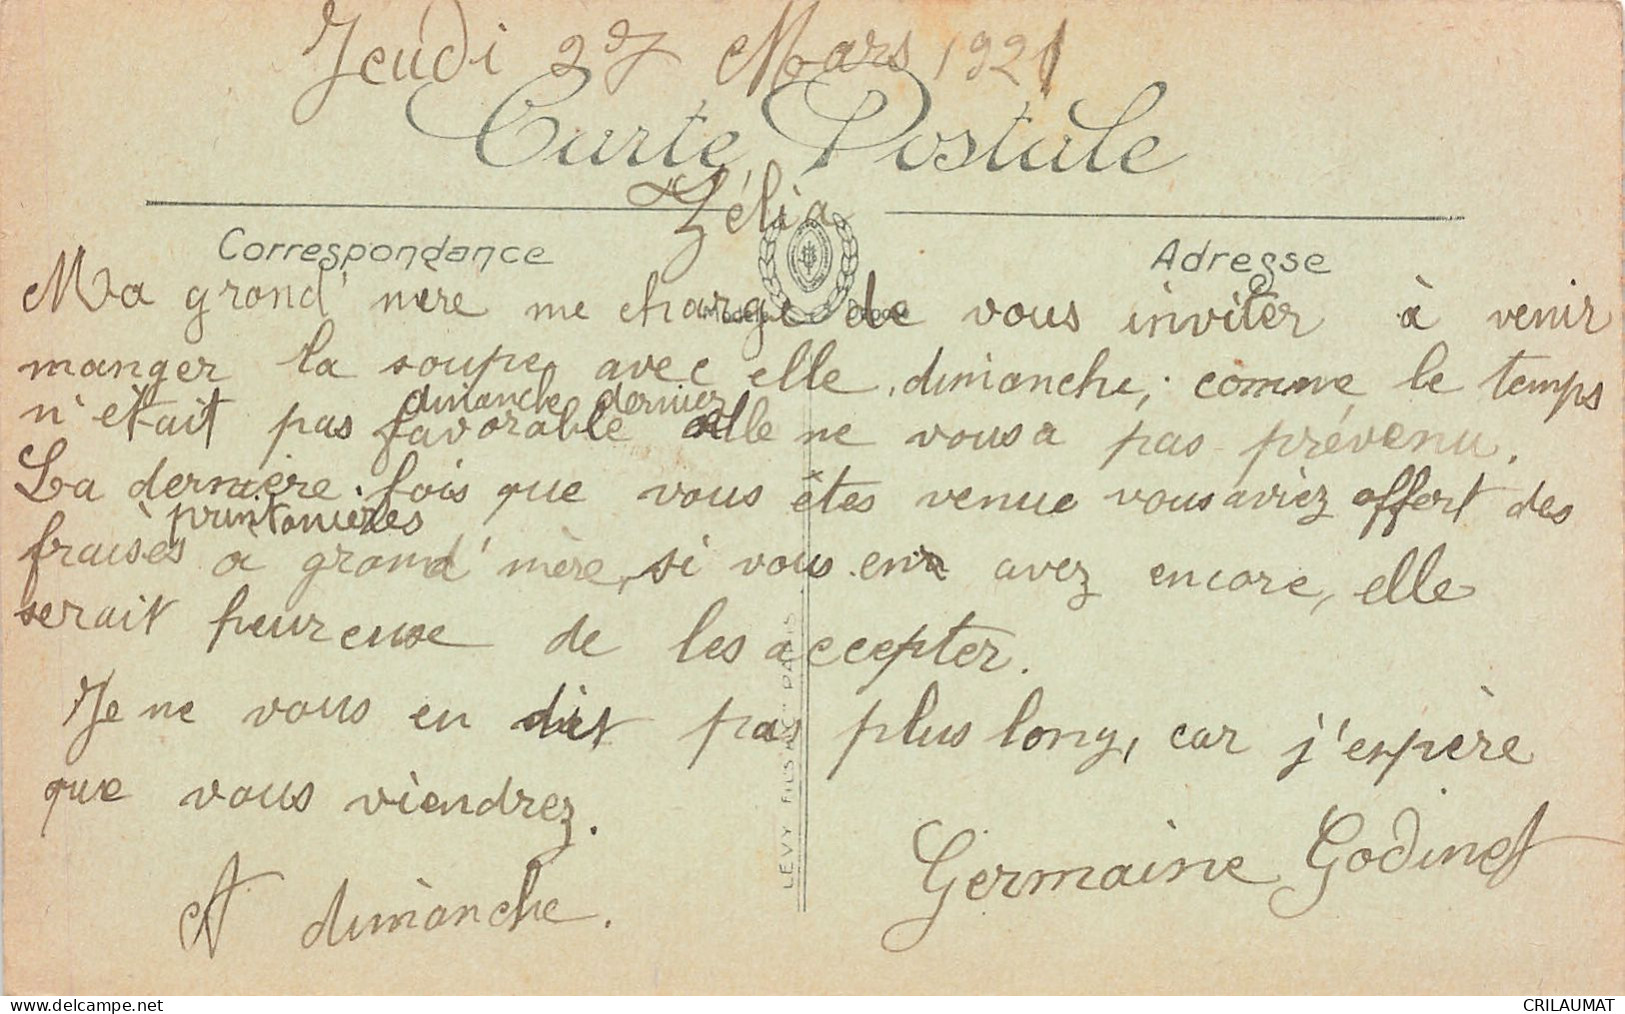 Jeudi 27 Mars 1921
Carte Postale
Zélia
Correspondance
Adresse
Ma grand'mère me charge de vous inviter à venir
manger la soupe avec elle dimanche, comme le temps
dimanche dernier
n'était pas favorable elle ne vous a pas prévenu.
La dernière fois que vous êtes venue vous aviez offert des
printanières
fraises à grand'mère, si vous en avez encore, elle
serait heureuse de les accepter.
Je ne vous en dit pas plus long, car j'espère
que vous viendrez.
A dimanche.
Germaine Godinet
LEVY FILS & Cie PARIS
CRILAUMAT
www.delcampe.net